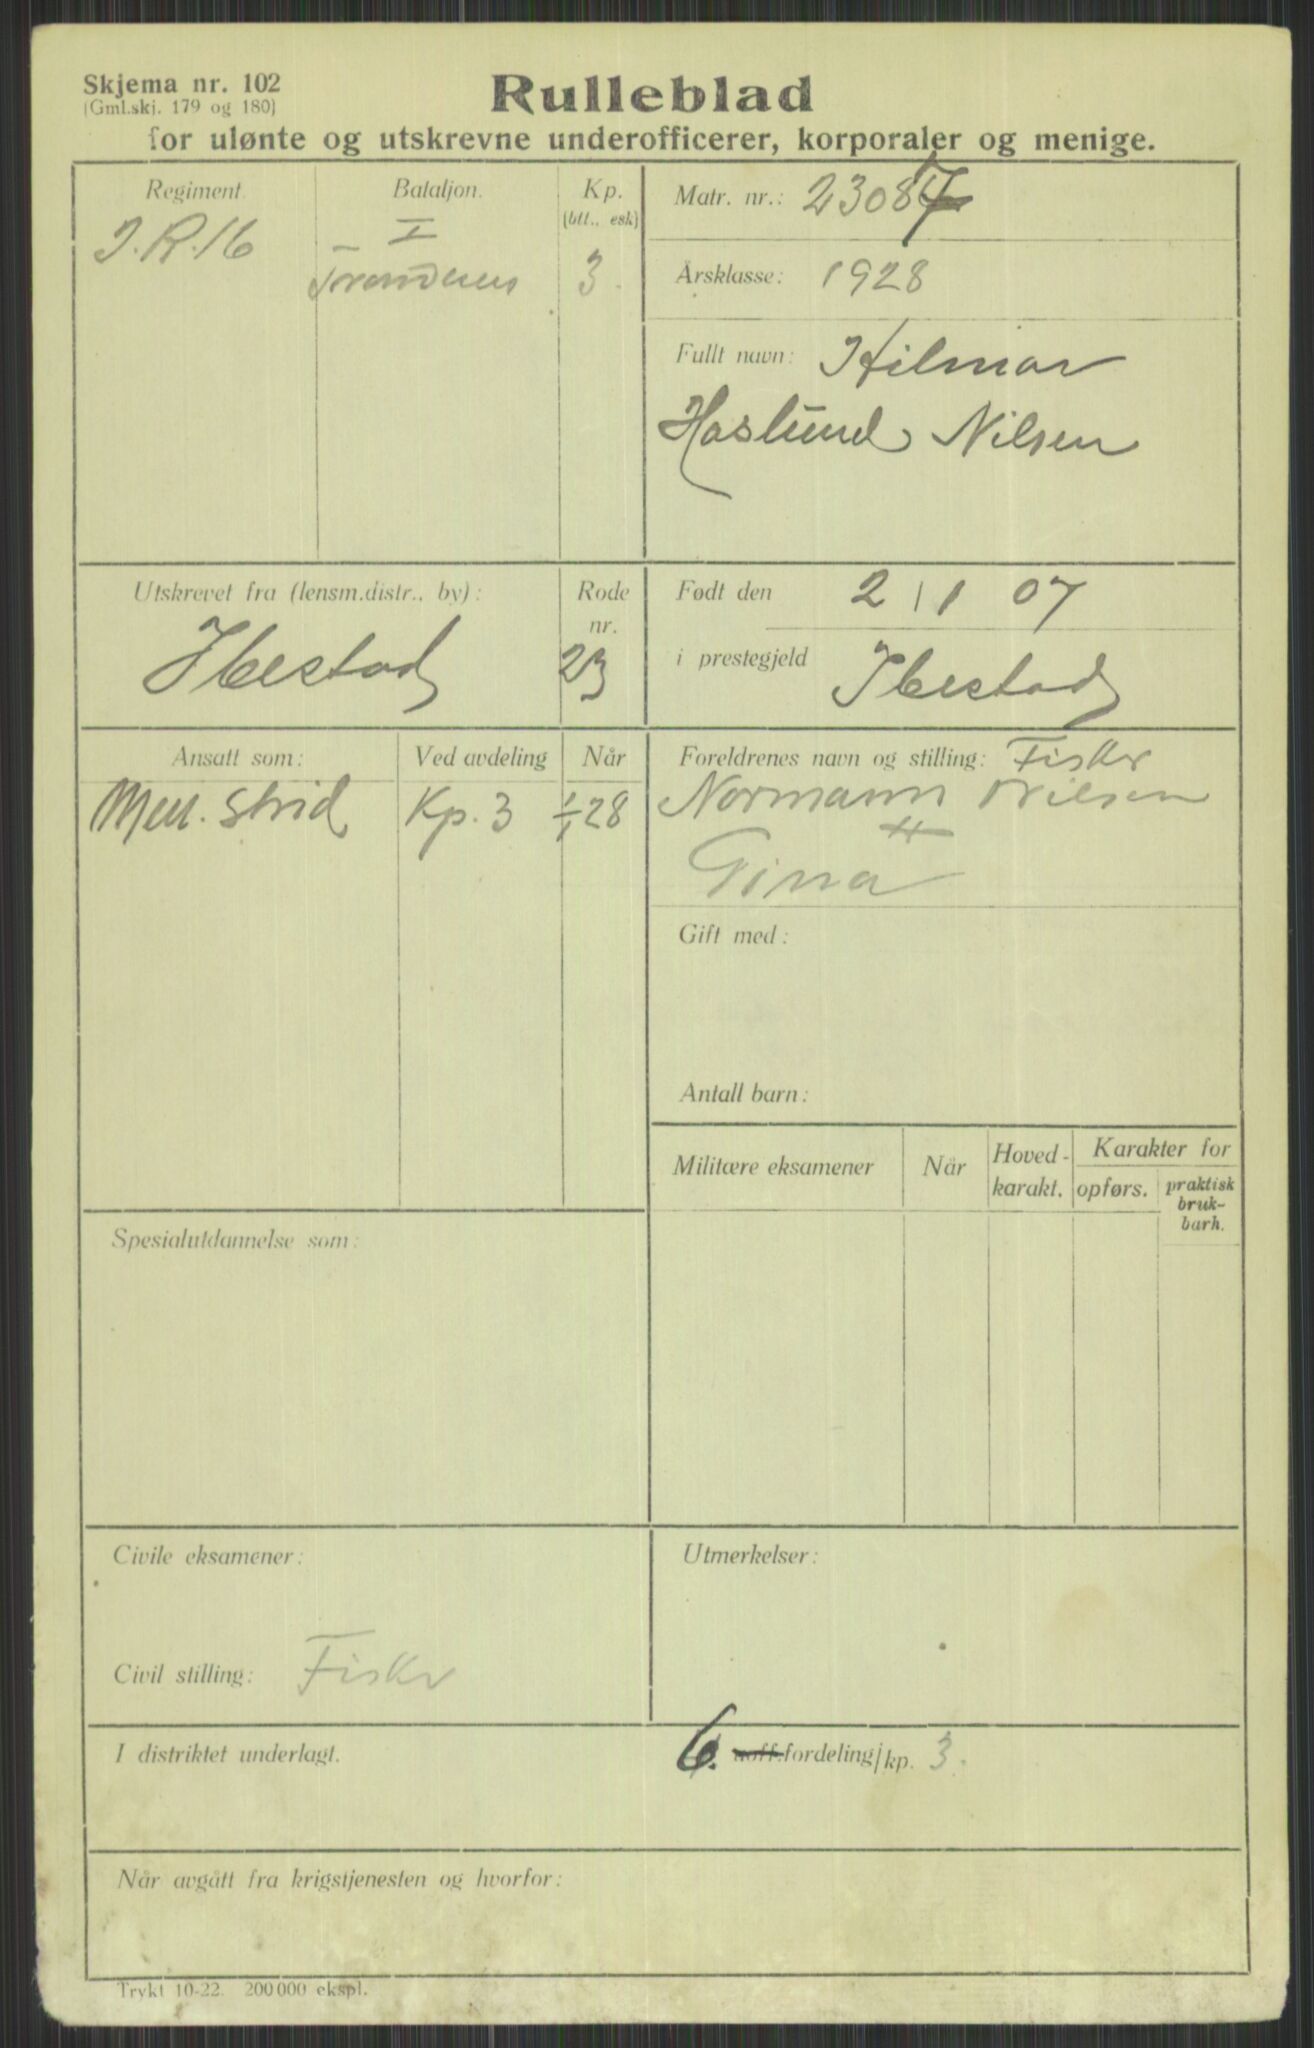 Skjema nr. 102
(Gml.skj. 179 og 180)
Rulleblad
for ulønte og utskrevne underofficerer, korporaler og menige.
Regiment.
Bataljon.
Kp.
(btt., esk)
J.R.16
I
Trondenes
3.
Matr. nr.: 23087
Årsklasse: 1928
Fullt navn: Hilmar
Haslund Nilsen
Utskrevet fra (lensm.distr., by):
Ibestad
Rode
nr.
23
Født den 2/1 07
i prestegjeld Ibestad
Ansatt som:
Ved avdeling
Når
Men. strid
Kp. 3
1/1 28
Foreldrenes navn og stilling: Fisker
Normann Nilsen
Gina
Gift med:
Antall barn:
Militære eksamener
Når
Hoved-
karakt.
Karakter for
opførs.
praktisk
bruk-
barh.
Spesialutdannelse som:
Civile eksamener:
Civil stilling: Fisker
Utmerkelser:
I distriktet underlagt.
6. uoff.fordeling/kp. 3.
Når avgått fra krigstjenesten og hvorfor:
Trykt 10-22. 200 000 ekspl.